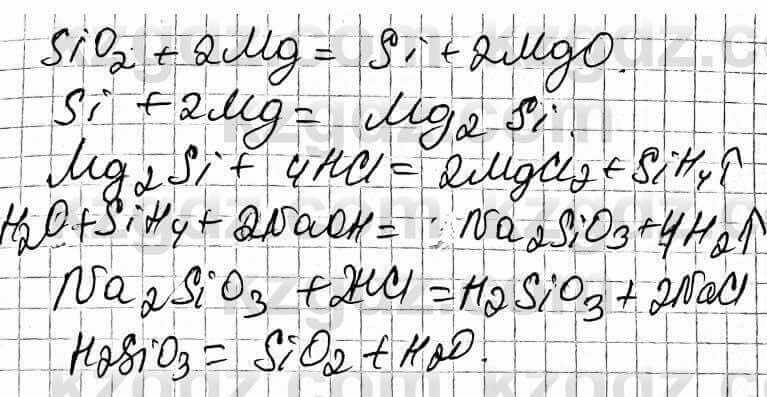 SiO₂ + 2Mg = Si + 2MgO.
Si + 2Mg = Mg₂Si.
Mg₂Si + 4HCl = 2MgCl₂ + SiH₄↑
H₂O + SiH₄ + 2NaOH = Na₂SiO₃ + 4H₂↑
Na₂SiO₃ + 2HCl = H₂SiO₃ + 2NaCl
H₂SiO₃ = SiO₂ + H₂O.